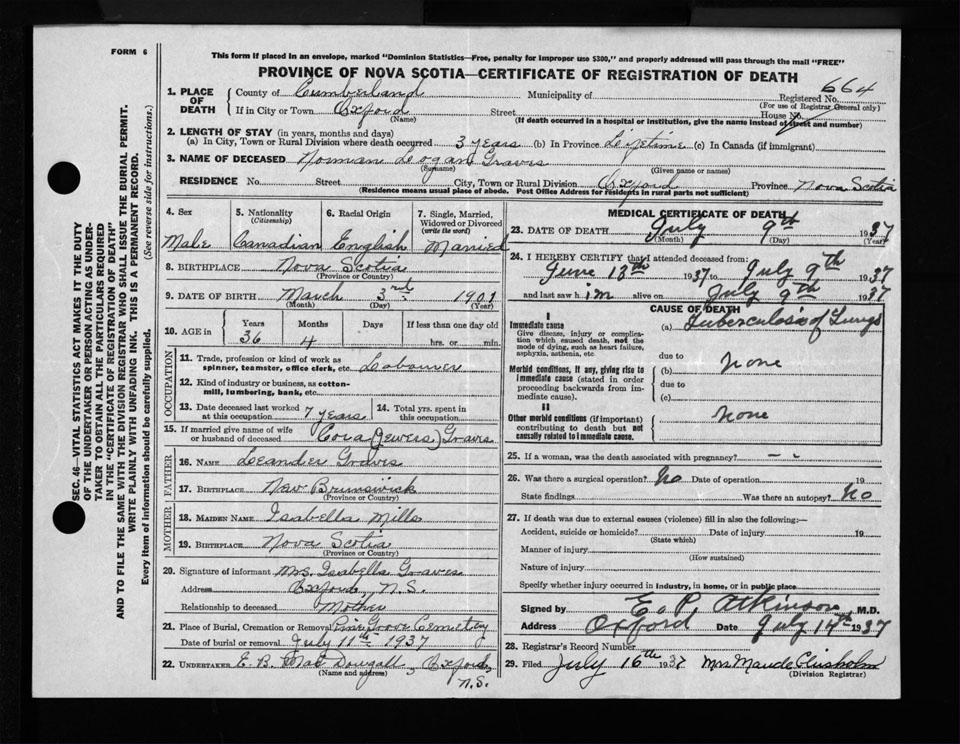 FORM 6
This form if placed in an envelope, marked "Dominion Statistics—Free, penalty for improper use $300," and properly addressed will pass through the mail "FREE"
PROVINCE OF NOVA SCOTIA—CERTIFICATE OF REGISTRATION OF DEATH
SEC. 46—VITAL STATISTICS ACT MAKES IT THE DUTY
OF THE UNDERTAKER OR PERSON ACTING AS UNDER-
TAKER TO OBTAIN ALL THE PARTICULARS REQUIRED
IN THE "CERTIFICATE OF REGISTRATION OF DEATH"
AND TO FILE THE SAME WITH THE DIVISION REGISTRAR WHO SHALL ISSUE THE BURIAL PERMIT.
WRITE PLAINLY WITH UNFADING INK. THIS IS A PERMANENT RECORD.
Every item of information should be carefully supplied. (See reverse side for instructions.)
1. PLACE OF DEATH
County of Cumberland Municipality of Registered No. 664
(For use of Registrar General only)
If in City or Town Oxford Street House No.
(Name) (If death occurred in a hospital or institution, give the name instead of street and number)
2. LENGTH OF STAY (in years, months and days)
(a) In City, Town or Rural Division where death occurred 3 years (b) In Province Lifetime (c) In Canada (if immigrant)
3. NAME OF DECEASED Norman Logan Graves
(Surname) (Given name or names)
RESIDENCE No. Street City, Town or Rural Division Oxford Province Nova Scotia
(Residence means usual place of abode. Post Office Address for residents in rural parts not sufficient)
4. Sex Male
5. Nationality (Citizenship) Canadian
6. Racial Origin English
7. Single, Married, Widowed or Divorced (write the word) Married
8. BIRTHPLACE Nova Scotia
(Province or Country)
9. DATE OF BIRTH March 3rd 1901
(Month) (Day) (Year)
10. AGE in Years Months Days If less than one day old
36 4 hrs. or min.
OCCUPATION
11. Trade, profession or kind of work as spinner, teamster, office clerk, etc. Labourer
12. Kind of industry or business, as cotton-mill, lumbering, bank, etc.
13. Date deceased last worked at this occupation 7 years
14. Total yrs. spent in this occupation
15. If married give name of wife or husband of deceased Cora (Jewers) Graves
FATHER
16. NAME Leander Graves
17. BIRTHPLACE New Brunswick
(Province or Country)
MOTHER
18. MAIDEN NAME Isabella Mills
19. BIRTHPLACE Nova Scotia
(Province or Country)
20. Signature of informant Mrs. Isabella Graves
Address Oxford, N.S.
Relationship to deceased Mother
21. Place of Burial, Cremation or Removal Pine Grove Cemetery
Date of burial or removal July 11th 1937
22. UNDERTAKER E. B. MacDougall, Oxford,
(Name and address) N.S.
MEDICAL CERTIFICATE OF DEATH
23. DATE OF DEATH July 9th 1937
(Month) (Day) (Year)
24. I HEREBY CERTIFY that I attended deceased from:
June 13th 1937 to July 9th 1937
and last saw him alive on July 9th 1937
CAUSE OF DEATH
I
Immediate cause
Give disease, injury or complication which caused death, not the mode of dying, such as heart failure, asphyxia, asthenia, etc.
(a) Tuberculosis of Lungs
due to
Morbid conditions, if any, giving rise to immediate cause (stated in order proceeding backwards from immediate cause).
(b) None
due to
(c)
II
Other morbid conditions (if important) contributing to death but not causally related to immediate cause.
None
25. If a woman, was the death associated with pregnancy? – –
26. Was there a surgical operation? No Date of operation 19
State findings Was there an autopsy? No
27. If death was due to external causes (violence) fill in also the following:—
Accident, suicide or homicide? Date of injury 19
(State which)
Manner of injury
(How sustained)
Nature of injury
Specify whether injury occurred in industry, in home, or in public place
Signed by E. P. Atkinson M.D.
Address Oxford Date July 14th 1937
28. Registrar's Record Number
29. Filed July 16th 1937 Mrs Maude Chisholm
(Division Registrar)